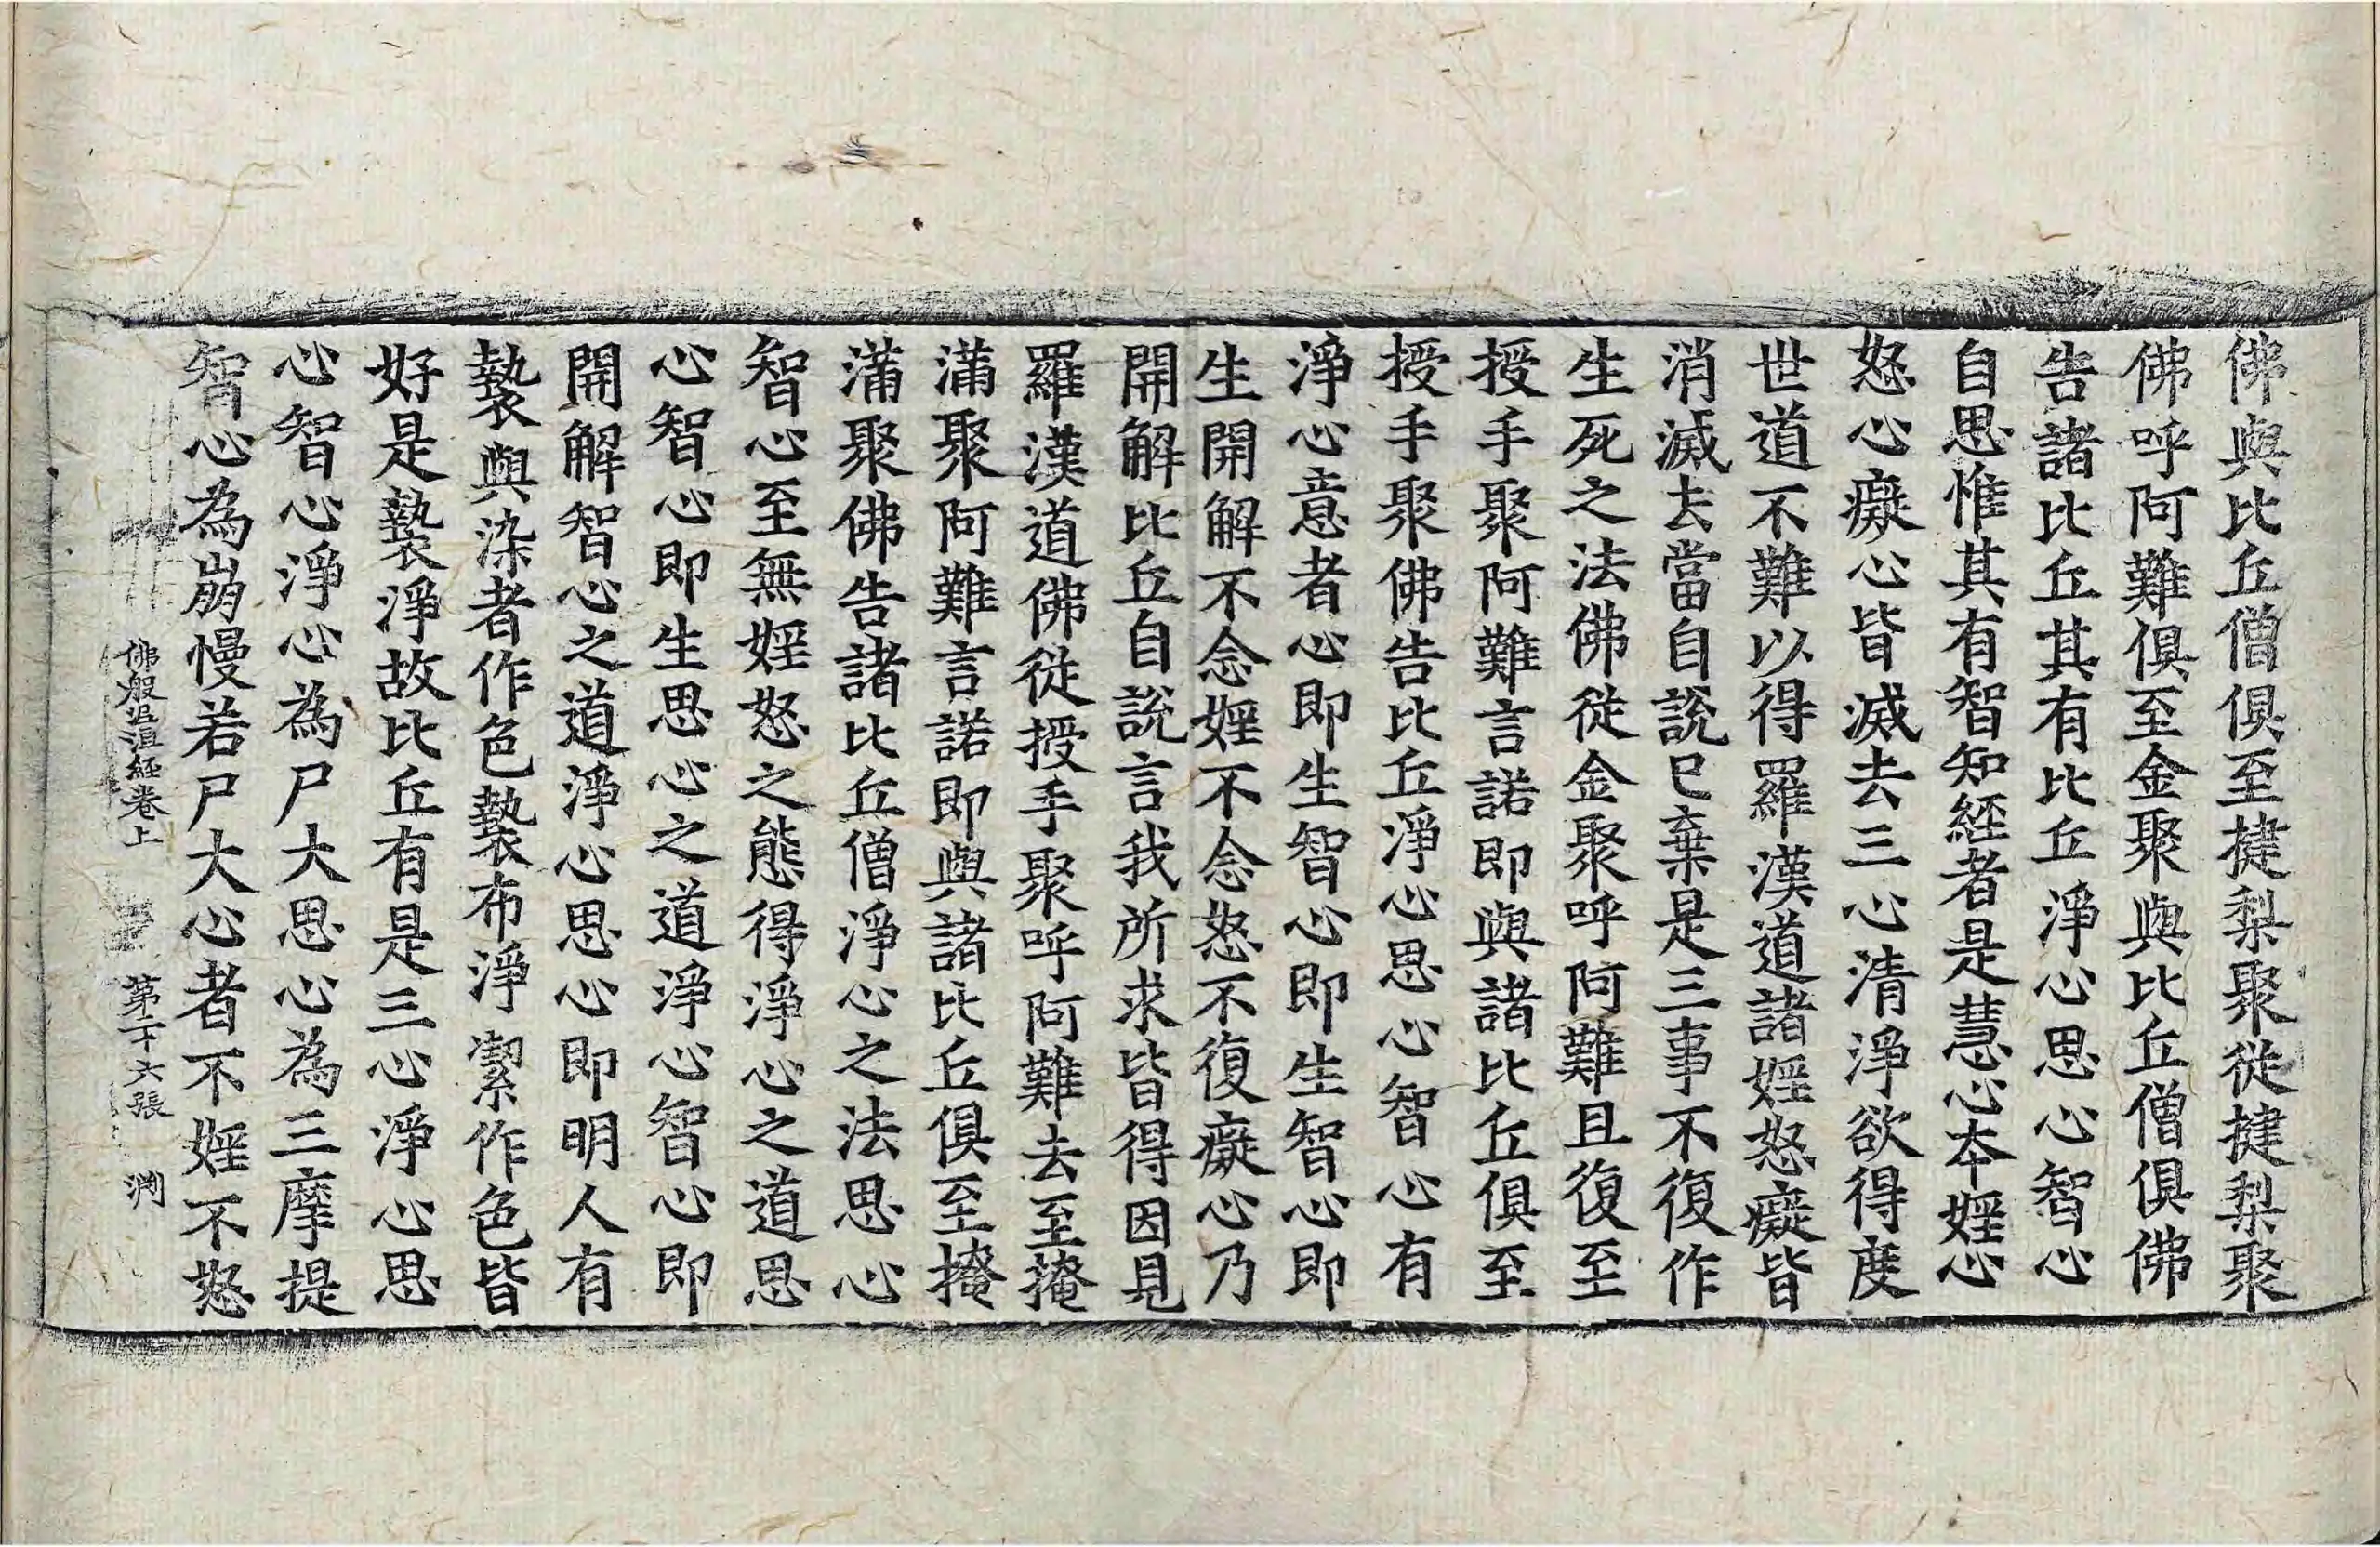 佛與比丘僧俱至揵梨聚從揵梨聚
佛呼阿難俱至金聚與比丘僧俱佛
告諸比丘其有比丘淨心思心智心
自思惟其有智知經者是慧心本婬心
怒心癡心皆滅去三心清淨欲得度
世道不難以得羅漢道諸婬怒癡皆
消滅去當自說已棄是三事不復作
生死之法佛從金聚呼阿難且復至
授手聚阿難言諾即與諸比丘俱至
授手聚佛告比丘淨心思心智心有
淨心意者心即生智心即生智心即
生開解不念婬不念怒不復癡心乃
開解比丘自說言我所求皆得因見
羅漢道佛從授手聚呼阿難去至掩
滿聚阿難言諾即與諸比丘俱至掩
滿聚佛告諸比丘僧淨心之法思心
智心至無婬怒之態得淨心之道思
心智心即生思心之道淨心智心即
開解智心之道淨心思心即明人有
褺與染者作色褺布淨潔作色皆
好是褺淨故比丘有是三心淨心思
心智心淨心為尸大思心為三摩提
智心為崩慢若尸大心者不婬不怒
佛般泥洹經卷上 第二十六張 淵